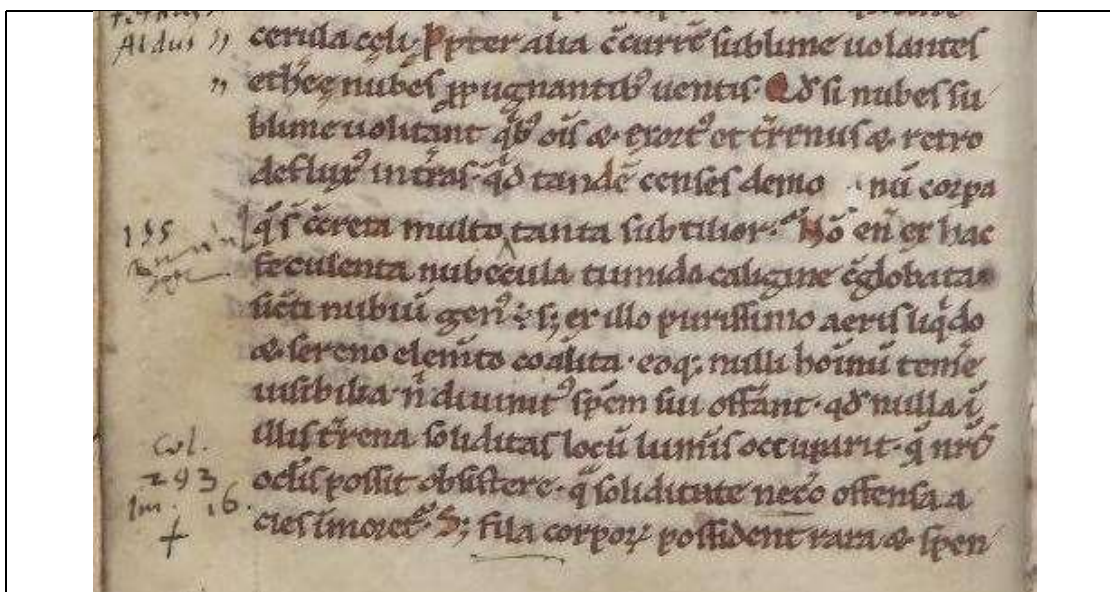 Aldus
cerula cęli. Ppter alia c̄curre̅ sublime uolantes
etheę nubes ꝓpugnantib⁹ uentis. Qd̓ si nubes su
blime uolitant q̇b⁹ oīs & exort⁹ et t̄renus & retro
defluxꝰ in t̄ras. q̇d tandē censes demo nū corpa
155
q̄ s̄t c̄creta multo tanta subtilior. Nō en̄ ex hac
feculenta nubecula tumida caligine c̄globata
sic̄ti nubiū genꝰ ÷ s; ex illo purissimo aeris liq̇do
& sereno elem̄to coalita. eoq; nulli hoīnū tem̄e
uisibilia. n̄ diuinitꝰ sp̄em sui off̄ant. qd̓ nulla ī
illis t̄rena soliditas locū lum̄is occuparit. q̄ nr̄is
Col.
293
Im. 16.
+
oc̄lis possit obsistere. q̄ soliditate nec̄o offensa a
cies īmoret̓. S; fila corpoꝝ possident rara & splen